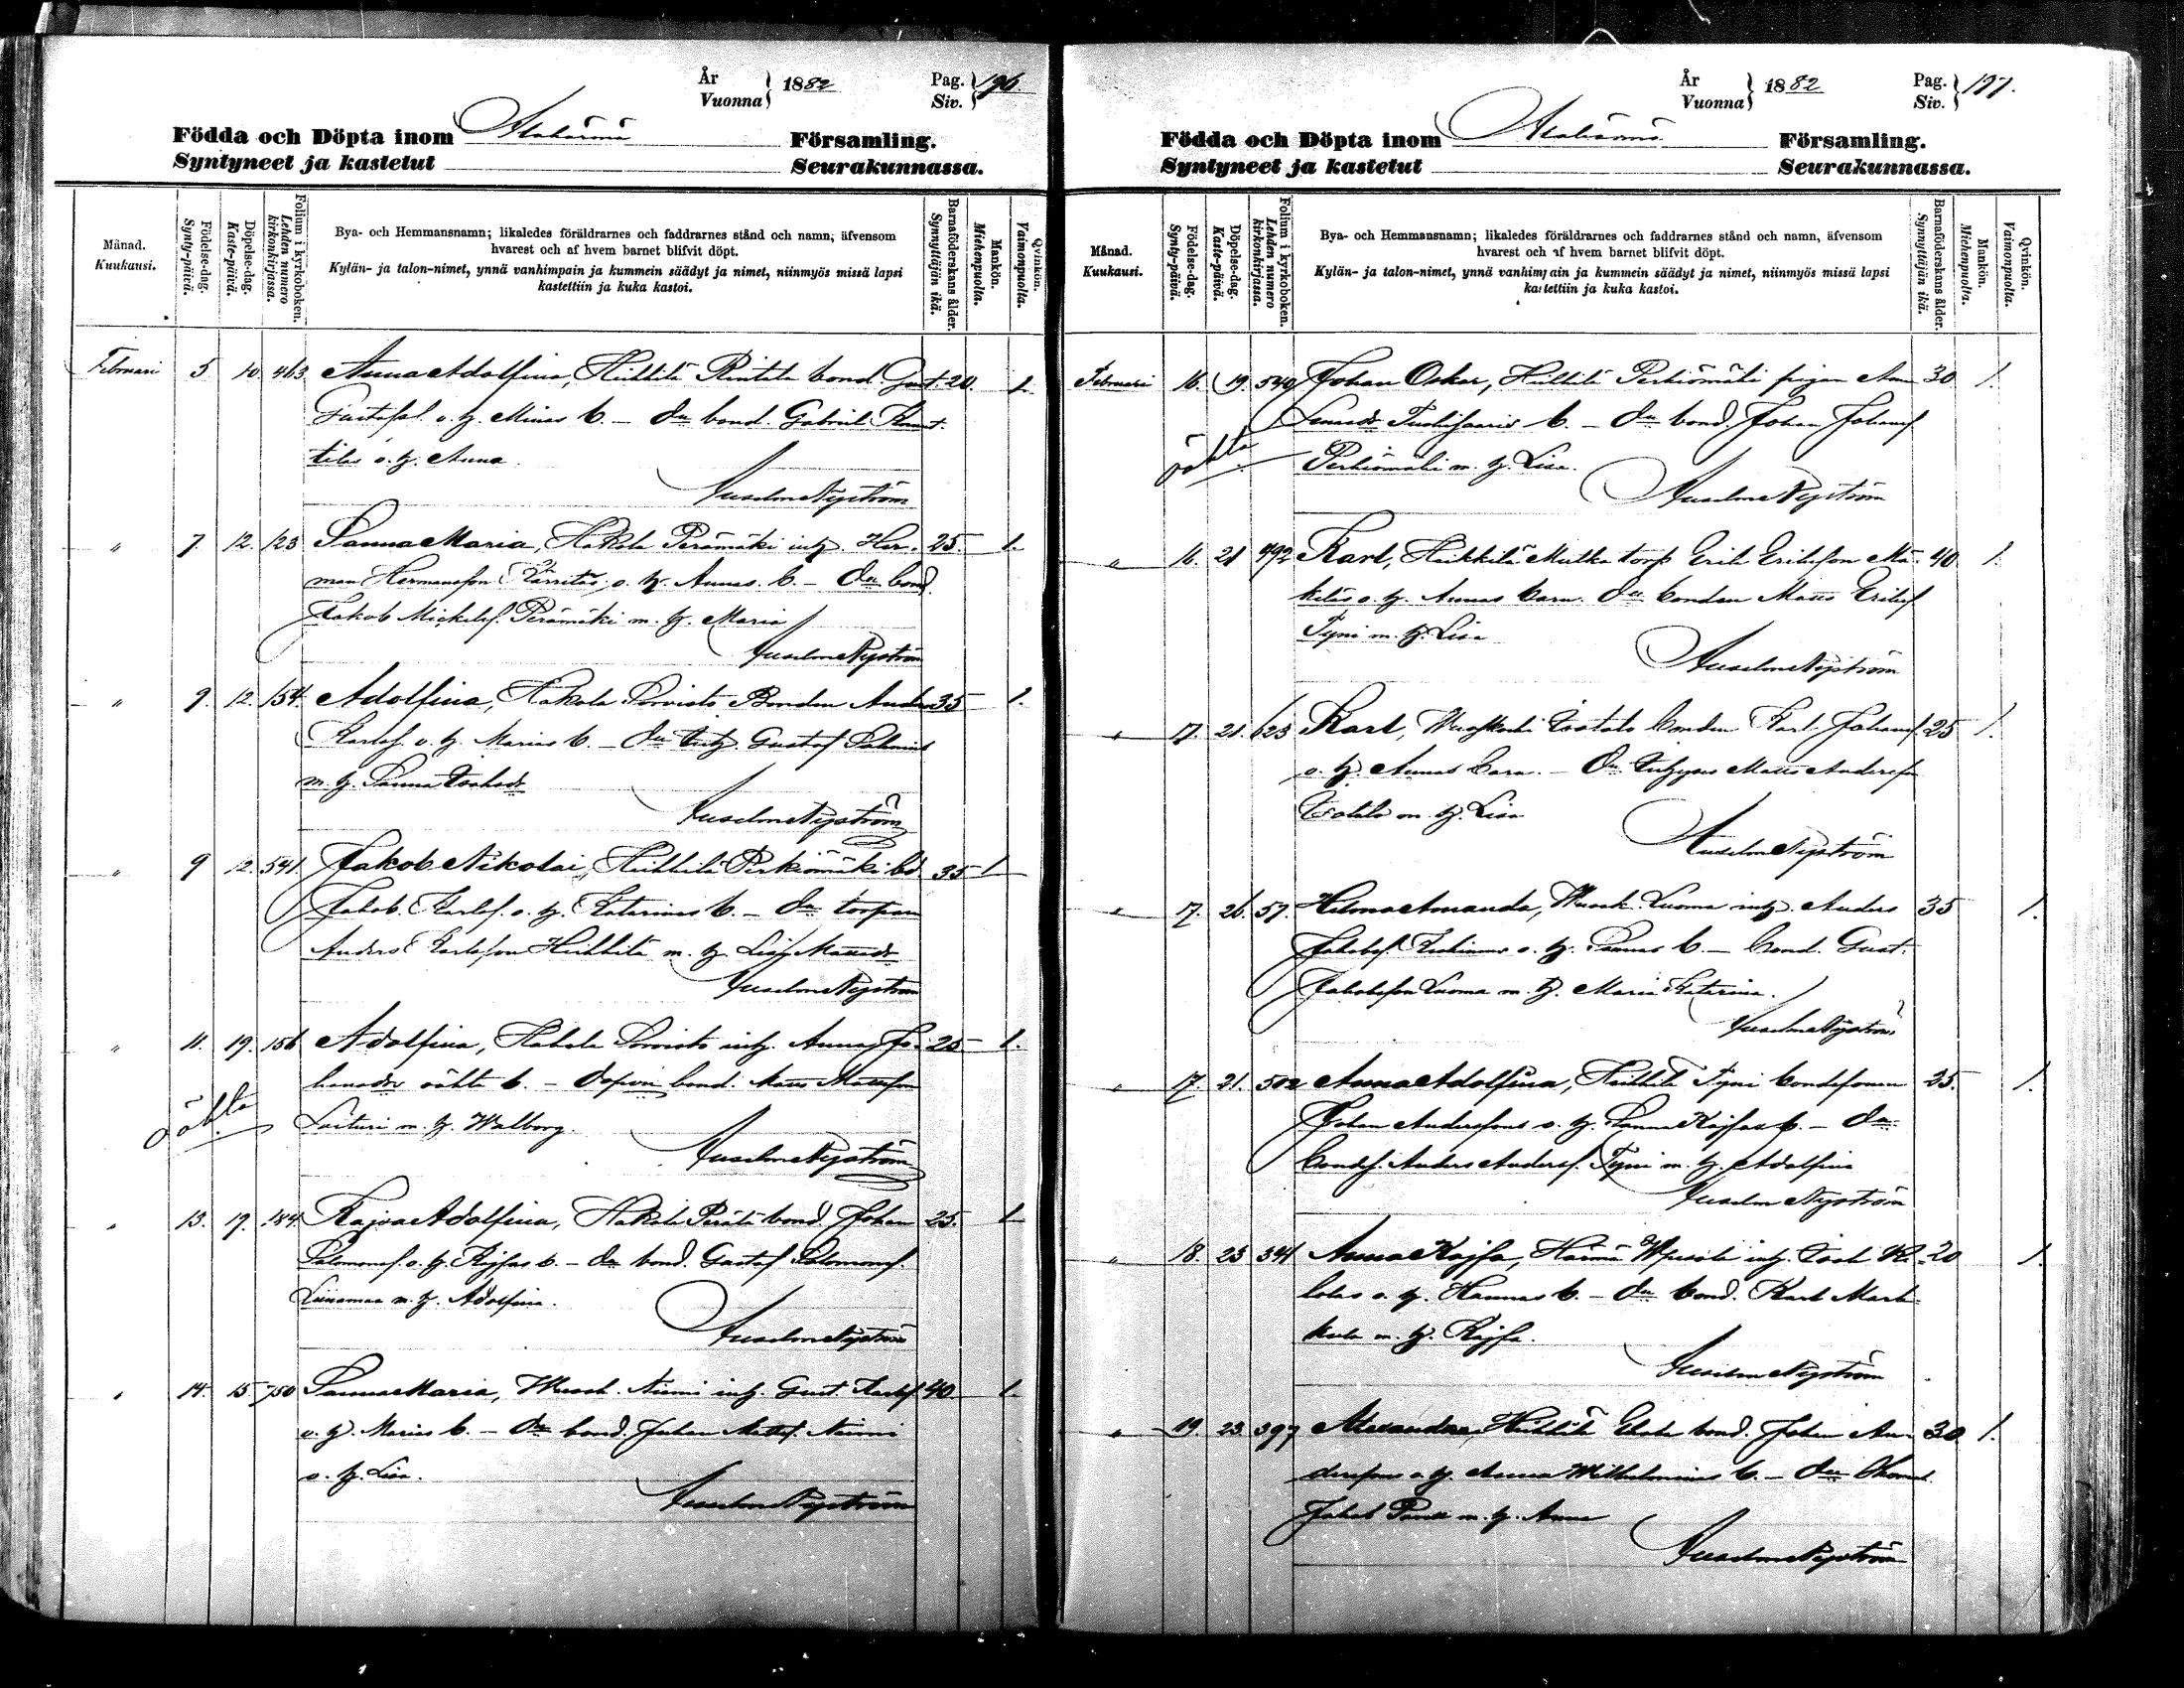 År
Vuonna } 1882 Pag.
Siv. } 196.
Födda och Döpta inom Alahärmä Församling.
Syntyneet ja kastetut Seurakunnassa.
Månad.
Kuukausi.
Födelse-dag.
Synty-päivä.
Döpelse-dag.
Kaste-päivä.
Folium i kyrkoboken.
Lehden numero
kirkonkirjassa.
Bya- och Hemmansnamn; likaledes föräldrarnes och faddrarnes stånd och namn, äfvensom
hvarest och af hvem barnet blifvit döpt.
Kylän- ja talon-nimet, ynnä vanhimpain ja kummein säädyt ja nimet, niinmyös missä lapsi
kastettiin ja kuka kastoi.
Barnaföderskans ålder.
Synnyttäjän ikä.
Mankön.
Miehenpuolta.
Qvinkön.
Vaimonpuolta.
Februari 5 10. 463 Anna Adolfina, Heikkilä Rintala bond. Gust. 20. 1.
Gustafss. o. h. Minas b. – Du bond. Gabriel
o. h. Anna.
Anselm Nyström
" 7. 12. 123 Sanna Maria, Hakola Perämäki inh. Her- 25. 1.
man Hermansson o. h. Annas b. – Du bond.
Jakob Mickelss. Perämäki m. h. Maria
Anselm Nyström
" 9. 12. 154. Adolfina, Hakola Sorvisto Bonden Anders 35 1.
Karlss. o. h. Marias b. – Du Gustaf
m. h. Sanna
Anselm Nyström
" 9 12. 541. Jakob Nikolai, Heikkilä Perkiömäki bd. 35 1
Jakob Karlss. o. h. Katarinas b. – Du torpare
Anders Karlsson Heikkilä m. h. Lisa Mattsdr
Anselm Nyström
" 11. 19. 156 Adolfina, Hakola Sorvisto inh. Annas Jo- 25 1.
hansdr oäkta b. – bond. Matts Mattsson
oäkta
Laituri m. h. Walborg.
Anselm Nyström
" 13. 19. 184. Kajsa Adolfina, Hakola Perälä bond. Johan 25. 1
Salomonss. o. h. Kajsas b. – Du bond. Gustaf Salomonss.
Liinamaa m. h. Adolfina.
Anselm Nyström
" 14. 15 750 Sanna Maria, Niemi inh. Gust. Karlss. 40 1.
o. h. Marias b. – Du bond. Johan Mattss. Niemi
o. h. Lisa.
Anselm Nyström
År
Vuonna } 1882 Pag.
Siv. } 197.
Födda och Döpta inom Alahärmä Församling.
Syntyneet ja kastetut Seurakunnassa.
Månad.
Kuukausi.
Födelse-dag.
Synty-päivä.
Döpelse-dag.
Kaste-päivä.
Folium i kyrkoboken.
Lehden numero
kirkonkirjassa.
Bya- och Hemmansnamn; likaledes föräldrarnes och faddrarnes stånd och namn, äfvensom
hvarest och af hvem barnet blifvit döpt.
Kylän- ja talon-nimet, ynnä vanhimpain ja kummein säädyt ja nimet, niinmyös missä lapsi
kastettiin ja kuka kastoi.
Barnaföderskans ålder.
Synnyttäjän ikä.
Mankön.
Miehenpuolta.
Qvinkön.
Vaimonpuolta.
Februari 16. 19. 540 Johan Oskar, Heikkilä Perkiömäki pigan 30 1.
b. – Du bond. Johan Johanss.
oäkta
Perkiömäki m. h. Lisa.
Anselm Nyström
" 16. 21 492 Karl, Heikkilä Mutka torp. Erik Eriksson Mä- 40 1.
keläs o. h. Annas barn. Du bonden Matts Erikss.
Tyni m. h. Lisa
Anselm Nyström
" 17. 21. 623 Karl, Wuoskoski bonden Karl Johanss. 25 1.
o. h. Annas barn. – Du Matts Andersson
m. h. Lisa
Anselm Nyström
" 17. 26. 57. Hilma Amanda, Luoma inh. Anders 35 1.
Jakobss. o. h. Sannas b. – bond. Gust.
Jakobsson Luoma m. h. Maria Katarina.
Anselm Nyström
" 17. 21. 502 Anna Adolfina, Heikkilä Tyni bondesonen 25. 1.
Johan Anderssons o. h. Sanna Kajsas b. – Du
bondes. Anders Anderss. Tyni m. h. Adolfina
Anselm Nyström
" 18. 23 341 Anna Kajsa, Härmä inh. 20 1.
o. h. Hannas b. – Du bond. Karl Mark-
kula m. h. Kajsa.
Anselm Nyström
" 19. 23. 397 Alexander, Heikkilä bond. Johan An- 30 1.
derssons o. h. Anna Wilhelminas b. – Du
Jakob m. h. Anna
Anselm Nyström